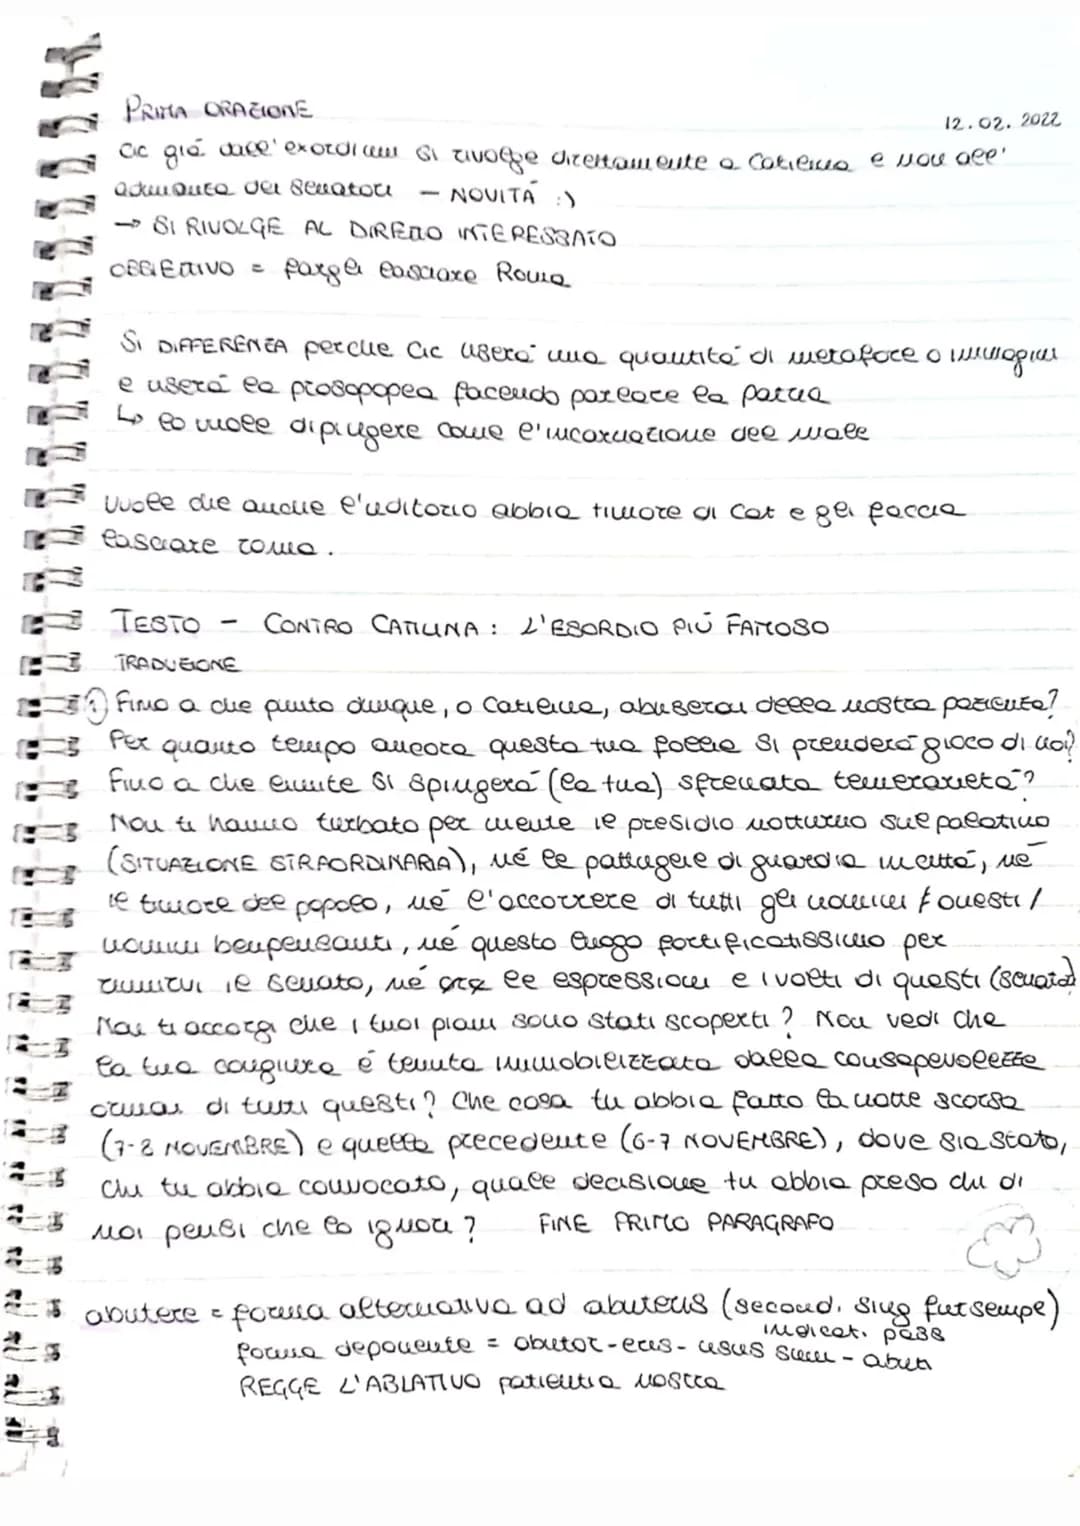 PRIMA ORAZIONE
12.02.2022
Cic già dall'exordium si rivolge direttamente a Catilina e non all'
adunanza dei senatori — NOVITÀ :)
→ SI RIVOLGE AL DIRETTO INTERESSATO
OBBIETTIVO = fargli lasciare Roma
SI DIFFERENZA perchè Cic userà una quantità di metafore o immagini
e userà la prosopopea facendo parlare la patria
↳ lo vuole dipingere come l'incarnazione del male
Vuole che anche l'uditorio abbia timore di Cat e gli faccia
lasciare roma.
TESTO - CONTRO CATILINA: L'ESORDIO PIÙ FAMOSO
TRADUZIONE
① Fino a che punto dunque, o Catilina, abuserai della nostra pazienza?
Per quanto tempo ancora questa tua follia si prenderà gioco di noi?
Fino a che limite si spingerà (la tua) sfrenata temerarietà?
Non ti hanno turbato per niente il presidio notturno sul palatino
(SITUAZIONE STRAORDINARIA), né le pattuglie di guardia in città, né
il timore del popolo, né l'accorrere di tutti gli uomini onesti /
uomini benpensanti, né questo luogo fortificatissimo per
riunirvi il senato, né le espressioni e i volti di questi (senatori)
Non ti accorgi che i tuoi piani sono stati scoperti? Non vedi che
la tua congiura è tenuta immobilizzata dalla consapevolezza
ormai di tutti questi? Che cosa tu abbia fatto la notte scorsa
(7-8 NOVEMBRE) e quella precedente (6-7 NOVEMBRE), dove sia stato,
chi tu abbia convocato, quale decisione tu abbia preso chi di
noi pensi che lo ignori? FINE PRIMO PARAGRAFO
abutere = forma alternativa ad abuteris (second. sing fut sempl)
indicat. pass
forma deponente = abutor-eris-usus sum-abuti
REGGE L'ABLATIVO patientia nostra